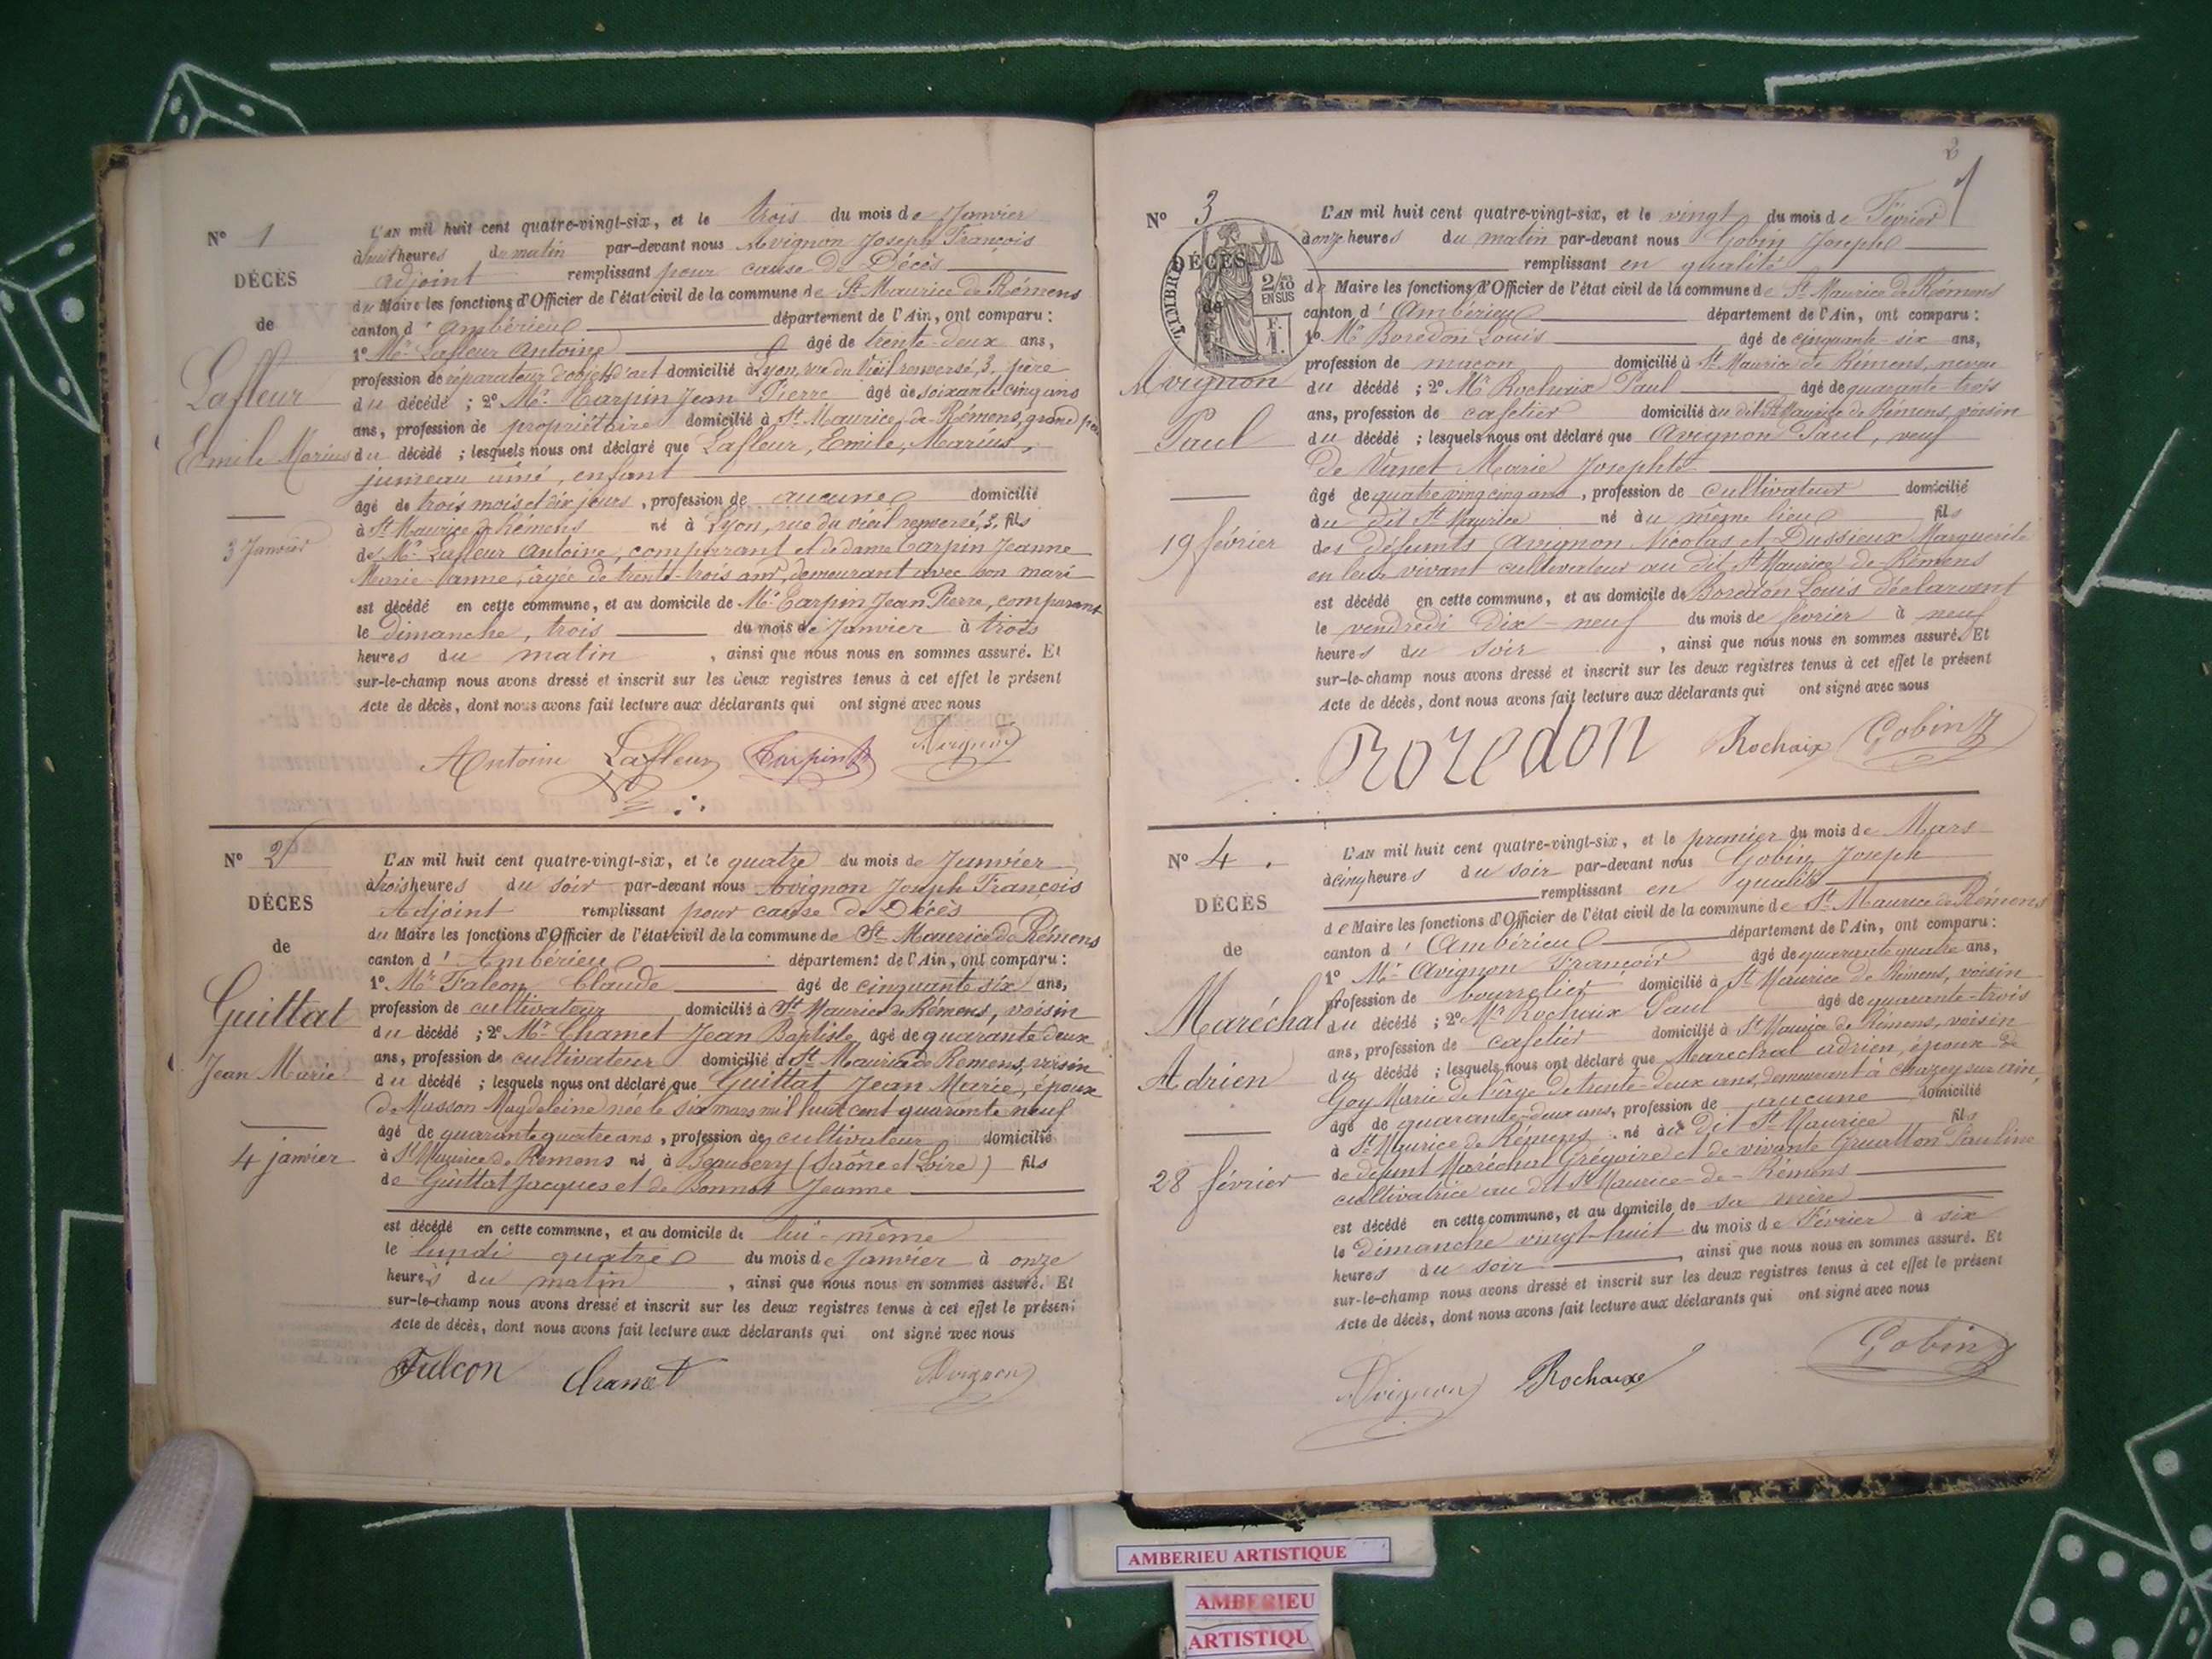 Nº 1
DÉCÈS
de
Lafleur
Emile Marius
3 Janvier
L'AN mil huit cent quatre-vingt-six, et le trois du mois de Janvier
à huit heures du matin par-devant nous Avignon Joseph François
adjoint remplissant pour cause de Décès
du Maire les fonctions d'Officier de l'état civil de la commune de St Maurice de Rémens
canton d'Ambérieu département de l'Ain, ont comparu :
1º Mr Lafleur Antoine âgé de trente-deux ans,
profession de réparateur d'objets d'art domicilié à Lyon, rue du Vieil renversé, 3, père
du décédé ; 2º Mr Carpin Jean Pierre âgé de soixante cinq ans
ans, profession de propriétaire domicilié à St Maurice de Rémens, grand père
du décédé ; lesquels nous ont déclaré que Lafleur, Emile, Marius,
jumeau ainé, enfant
âgé de trois mois et dix jours, profession de aucune domicilié
à St Maurice de Rémens né à Lyon, rue du vieil renversé, 3, fils
de Mr Lafleur Antoine, comparant et de dame Carpin Jeanne
Marie-Vanne, âgée de trente-trois ans, demeurant avec son mari
est décédé en cette commune, et au domicile de Mr Carpin Jean Pierre, comparant
le dimanche, trois du mois de Janvier à trois
heures du matin, ainsi que nous nous en sommes assuré. Et
sur-le-champ nous avons dressé et inscrit sur les deux registres tenus à cet effet le présent
Acte de décès, dont nous avons fait lecture aux déclarants qui ont signé avec nous
Antoine Lafleur Carpin Avignon
Nº 2
DÉCÈS
de
Guittat
Jean Marie
4 janvier
L'AN mil huit cent quatre-vingt-six, et le quatre du mois de Janvier
à trois heures du soir par-devant nous Avignon Joseph François
Adjoint remplissant pour cause de Décès
du Maire les fonctions d'Officier de l'état civil de la commune de St Maurice de Rémens
canton d'Ambérieu département de l'Ain, ont comparu :
1º Mr Falcon Claude âgé de cinquante six ans,
profession de cultivateur domicilié à St Maurice de Rémens, voisin
du décédé ; 2º Mr Chamet Jean Baptiste âgé de quarante deux
ans, profession de cultivateur domicilié à St Maurice de Remens, voisin
du décédé ; lesquels nous ont déclaré que Guittat Jean Marie, époux
de Musson Magdeleine née le six mars mil huit cent quarante neuf
âgé de quarante quatre ans, profession de cultivateur domicilié
à St Maurice de Remens né à Beaubery (Saône et Loire) fils
de Guittat Jacques et de Bonnot Jeanne
est décédé en cette commune, et au domicile de lui-même
le lundi quatre du mois de Janvier à onze
heures du matin, ainsi que nous nous en sommes assuré. Et
sur-le-champ nous avons dressé et inscrit sur les deux registres tenus à cet effet le présent
Acte de décès, dont nous avons fait lecture aux déclarants qui ont signé avec nous
Falcon Chamet Avignon
2
1
Nº 3
DÉCÈS
de
TIMBRE
2/10
EN SUS
Avignon
Paul
19 février
L'AN mil huit cent quatre-vingt-six, et le vingt du mois de Février
à onze heures du matin par-devant nous Gobin Joseph
remplissant en qualité
de Maire les fonctions d'Officier de l'état civil de la commune de St Maurice de Rémens
canton d'Ambérieu département de l'Ain, ont comparu :
1º Mr Boredon Louis âgé de cinquante-six ans,
profession de maçon domicilié à St Maurice de Rémens, neveu
du décédé ; 2º Mr Rochaix Paul âgé de quarante trois
ans, profession de cafetier domicilié au dit St Maurice de Rémens, voisin
du décédé ; lesquels nous ont déclaré que Avignon Paul, veuf
de Vanet Marie Josephte
âgé de quatre vingt cinq ans, profession de cultivateur domicilié
au dit St Maurice né au même lieu fils
des défunts Avignon Nicolas et Dussieux Marguerite
en leur vivant cultivateur au dit St Maurice de Rémens
est décédé en cette commune, et au domicile de Boredon Louis déclarant
le vendredi dix-neuf du mois de février à neuf
heures du soir, ainsi que nous nous en sommes assuré. Et
sur-le-champ nous avons dressé et inscrit sur les deux registres tenus à cet effet le présent
Acte de décès, dont nous avons fait lecture aux déclarants qui ont signé avec nous
Boredon Rochaix Gobin J
Nº 4.
DÉCÈS
de
Maréchal
Adrien
28 février
L'AN mil huit cent quatre-vingt-six, et le premier du mois de Mars
à cinq heures du soir par-devant nous Gobin Joseph
remplissant en qualité
de Maire les fonctions d'Officier de l'état civil de la commune de St Maurice de Rémens
canton d'Ambérieu département de l'Ain, ont comparu :
1º Mr Avignon François âgé de quarante quatre ans,
profession de bourrelier domicilié à St Maurice de Rémens, voisin
du décédé ; 2º Mr Rochaix Paul âgé de quarante-trois
ans, profession de cafetier domicilié à St Maurice de Rémens, voisin
du décédé ; lesquels nous ont déclaré que Marechal adrien, époux de
Goy Marie de l'âge de trente-deux ans, demeurant à Chazey sur ain,
âgé de quarante-deux ans, profession de aucune domicilié
à St Maurice de Rémens né au dit St Maurice fils
de défunt Maréchal Grégoire et de vivante Pauline
cultivatrice au dit St Maurice-de-Rémens
est décédé en cette commune, et au domicile de sa mère
le Dimanche vingt-huit du mois de Février à six
heures du soir, ainsi que nous nous en sommes assuré. Et
sur-le-champ nous avons dressé et inscrit sur les deux registres tenus à cet effet le présent
Acte de décès, dont nous avons fait lecture aux déclarants qui ont signé avec nous
Avignon Rochaix Gobin J
AMBERIEU ARTISTIQUE
AMBERIEU
ARTISTIQU